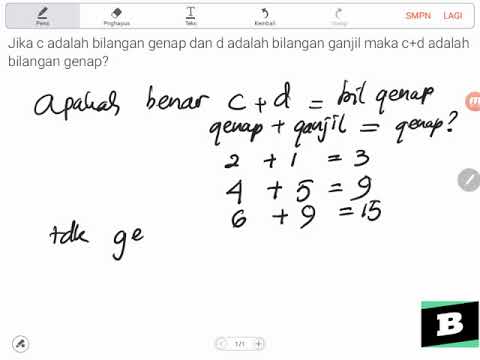 Pena
Penghapus
Teks
Kembali
SMPN
LAGI
Jika c adalah bilangan genap dan d adalah bilangan ganjil maka c+d adalah
bilangan genap?
Apakah benar c + d = bil genap
genap + ganjil = genap?
2 + 1 = 3
4 + 5 = 9
6 + 9 = 15
tdk ge
1/1
B